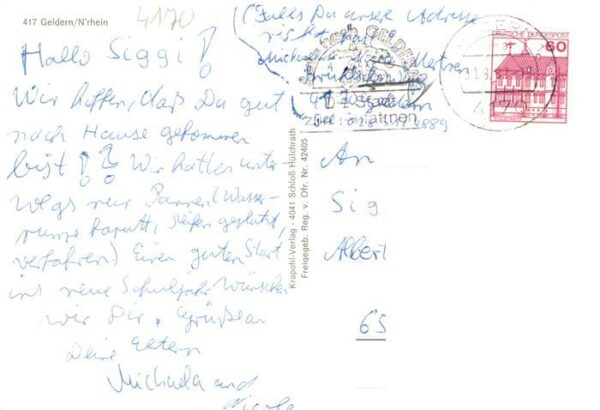 417 Geldern/N'rhein
4170
Hallo Siggi!
Wir hoffen, daß Du gut
nach Hause gekommen
bist! Wir hatten unter-
wegs nur Pannen (Wasser-
pumpe kaputt, Reifen geplatzt,
verfahren.) Einen guten Start
ins neue Schuljahr wünschen
wir Dir. Grüße an
Deine Eltern
Michaela und
Nicole
(Falls Du unsere Adresse
nicht hast
4170 Geldern
DEUTSCHE BUNDESPOST
60
Krapohl-Verlag - 4041 Schloß Hülchrath
Freigegeb. Reg. v. Ofr. Nr. 42405
An
Sig
Albert
65